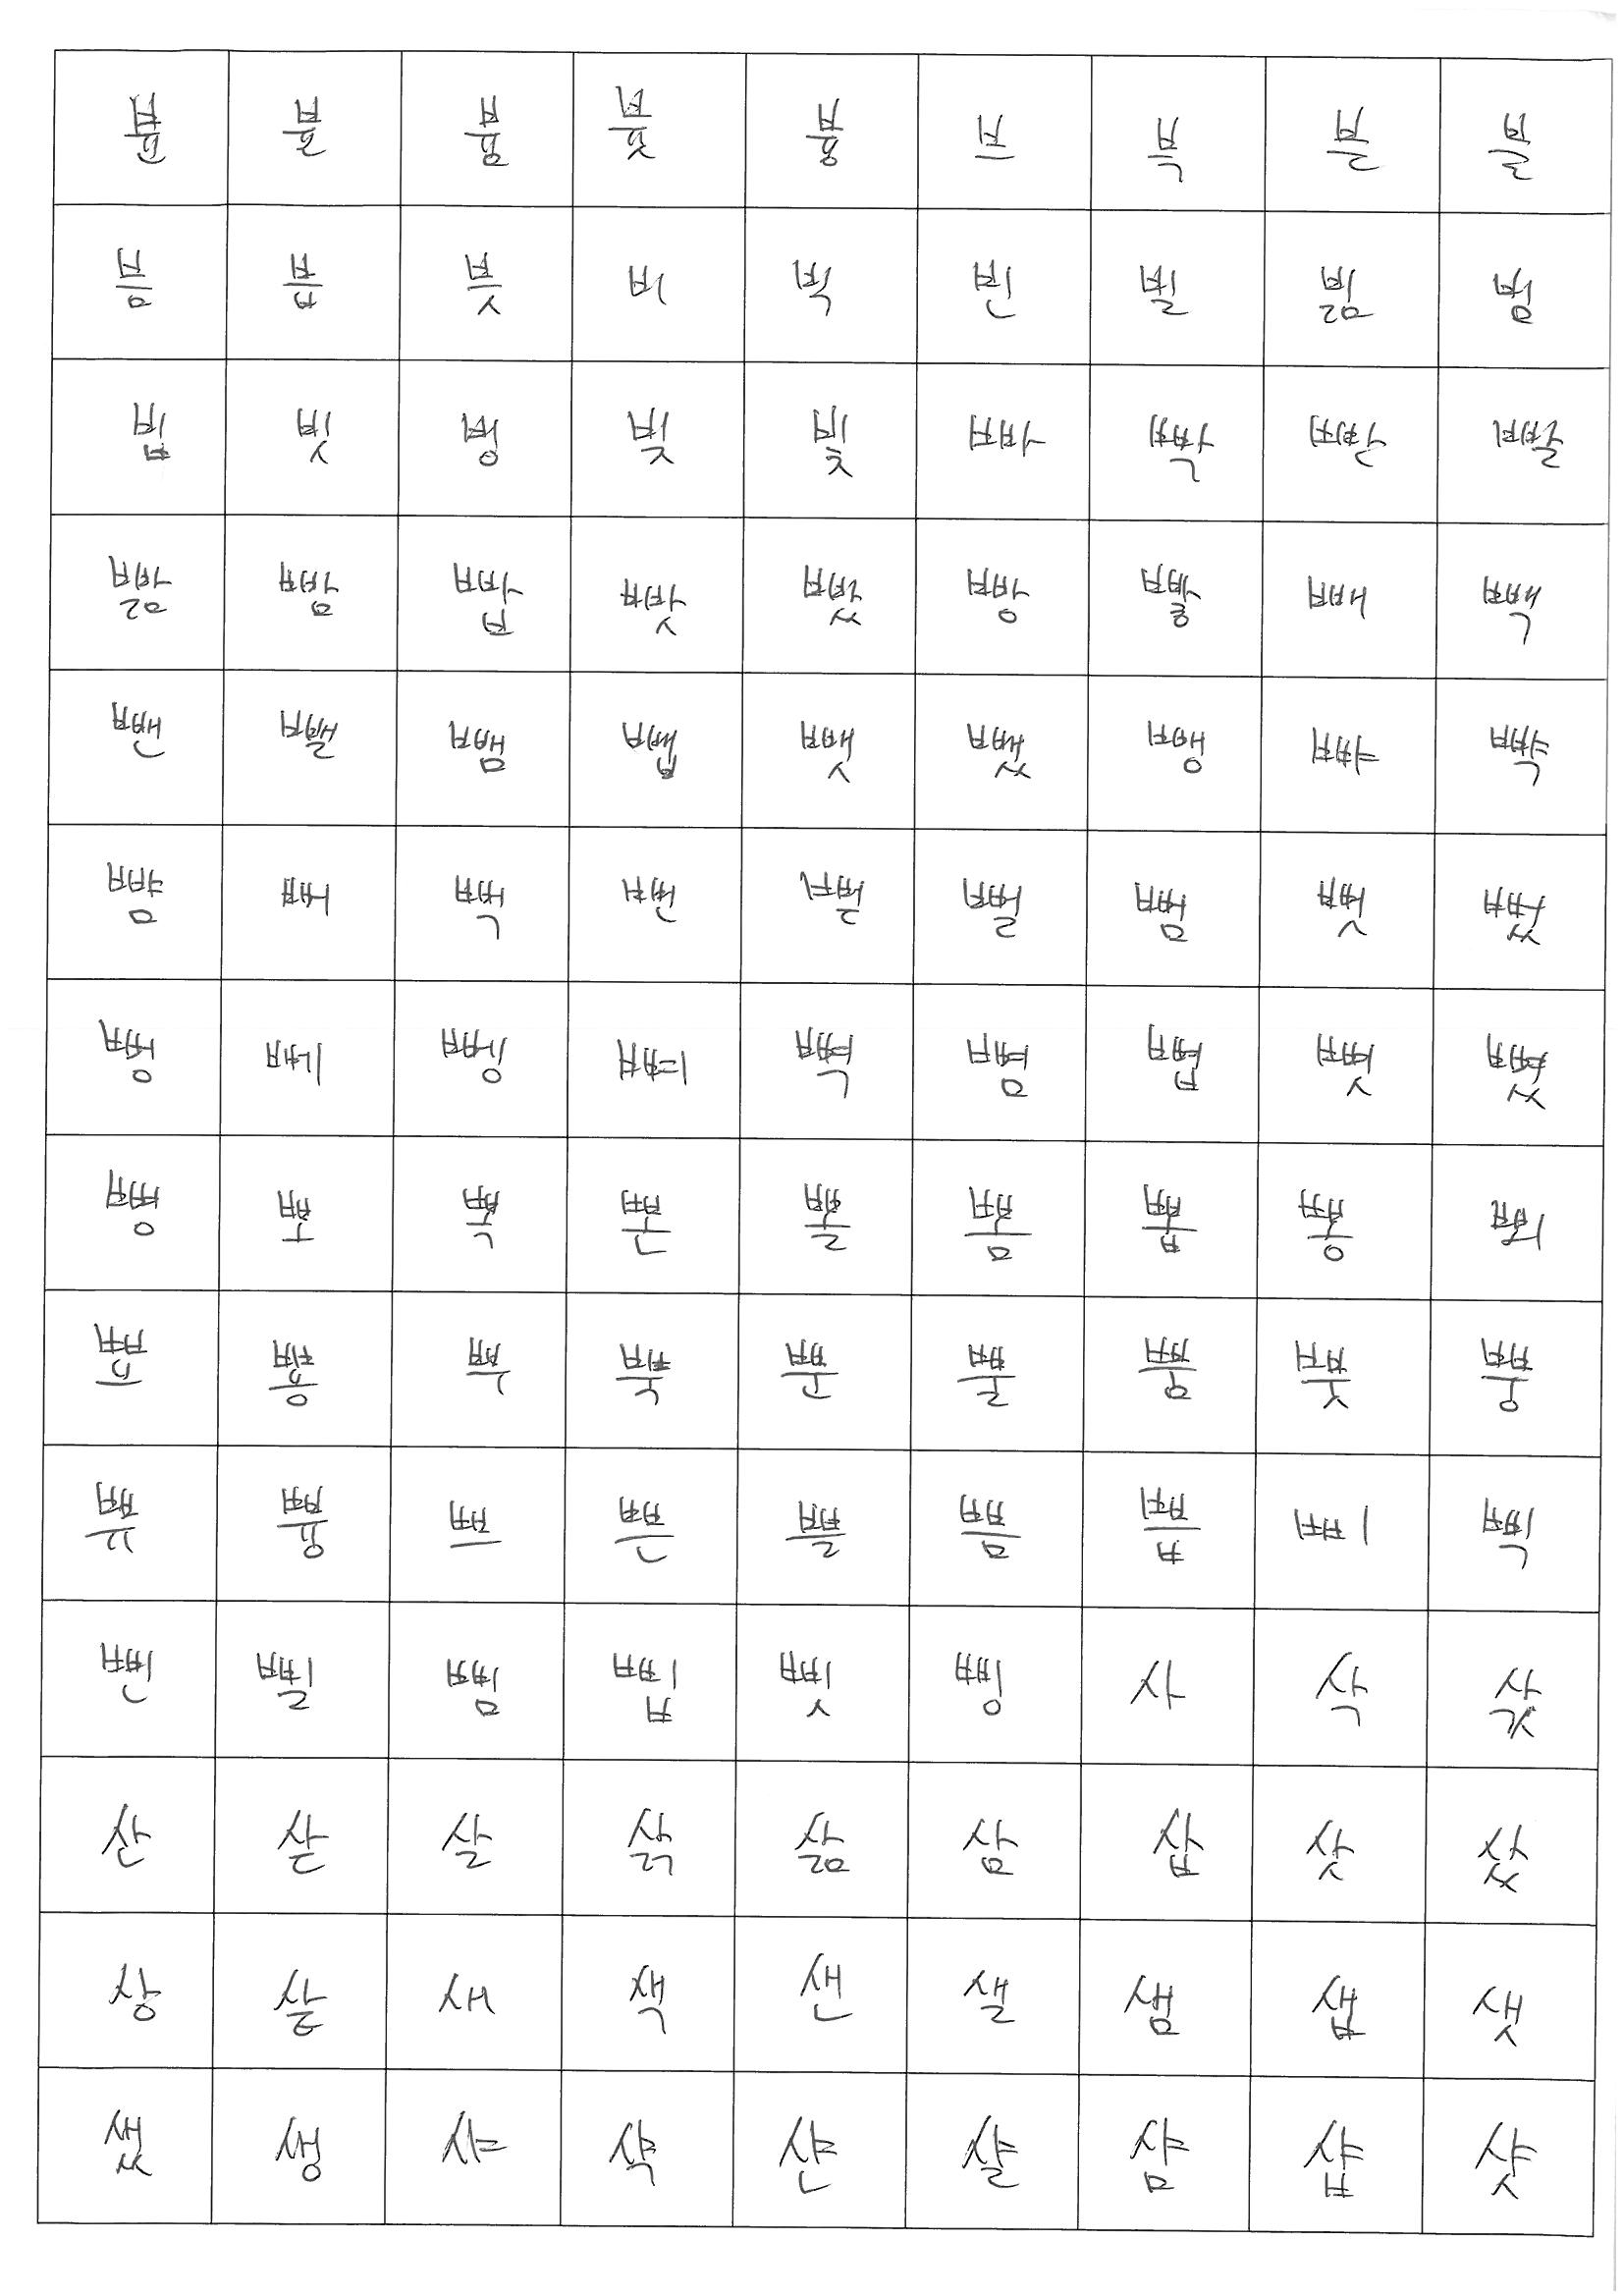 뷴 뷸 븀 븃 븅 브 븍 븐 블
븜 븝 븟 비 빅 빈 빌 빎 빔
빕 빗 빙 빚 빛 빠 빡 빤 빨
빪 빰 빱 빳 빴 빵 빻 빼 빽
뺀 뺄 뺌 뺍 뺏 뺐 뺑 뺘 뺙
뺨 뻐 뻑 뻔 뻗 뻘 뻠 뻣 뻤
뻥 뻬 뻉 뼈 뼉 뼘 뼙 뼛 뼜
뼝 뽀 뽁 뽄 뽈 뽐 뽑 뽕 뾔
뾰 뿅 뿌 뿍 뿐 뿔 뿜 뿟 뿡
쀼 쁑 쁘 쁜 쁠 쁨 쁩 삐 삑
삔 삘 삠 삡 삣 삥 사 삭 삯
산 삳 살 삵 삶 삼 삽 삿 샀
상 샅 새 색 샌 샐 샘 샙 샛
샜 생 샤 샥 샨 샬 샴 샵 샷